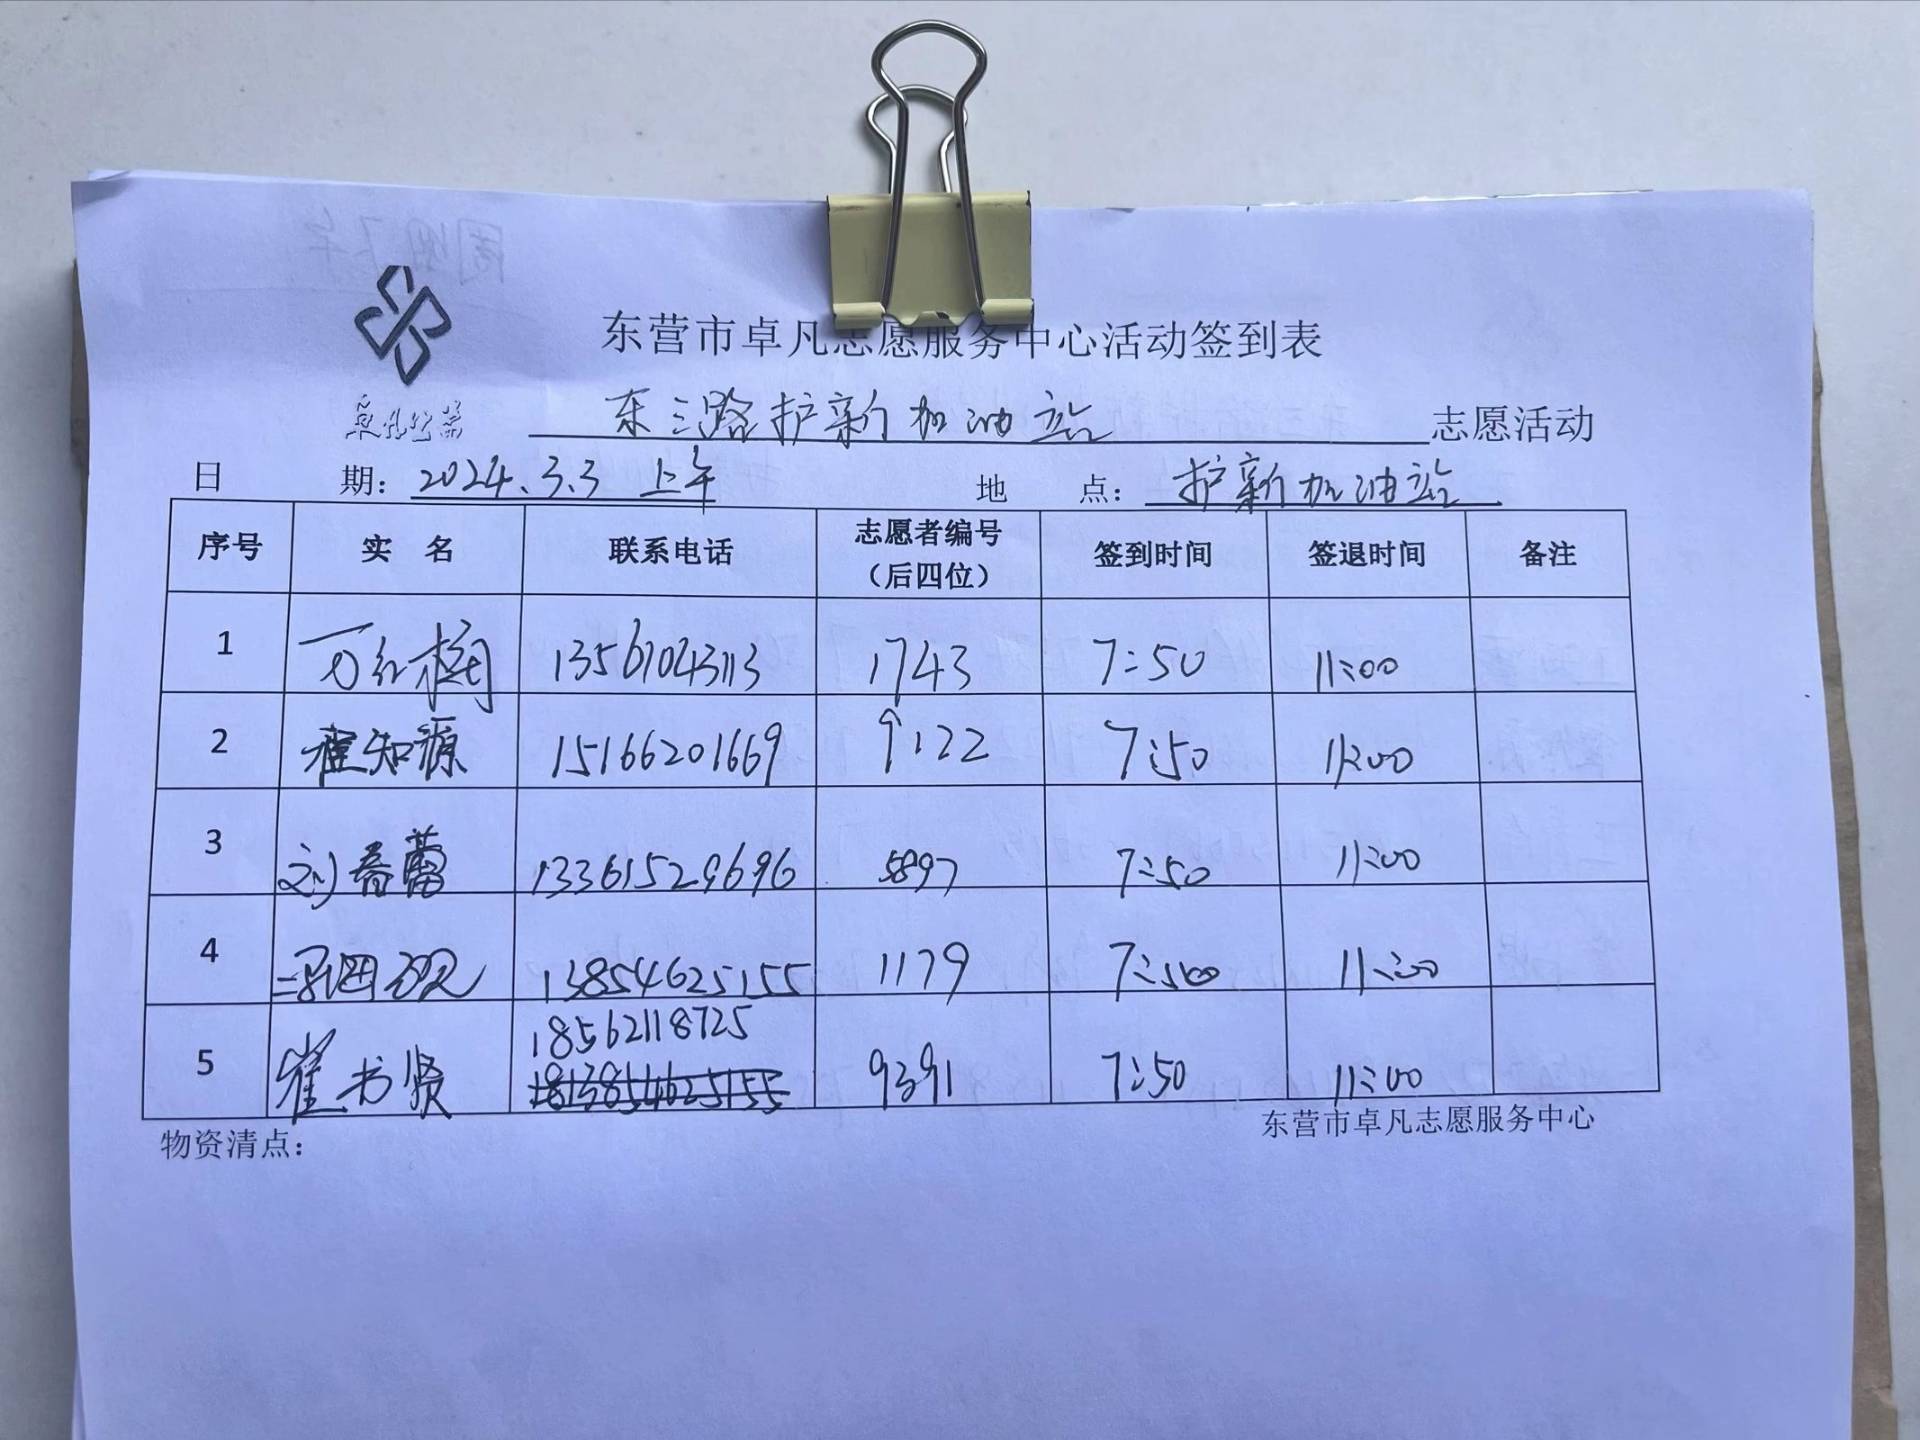 东营市卓凡志愿服务中心活动签到表
卓凡公益
东三路护新加油站 志愿活动
日期：2024.3.3 上午 地点：护新加油站
序号 实名 联系电话 志愿者编号（后四位） 签到时间 签退时间 备注
1 万红梅 13561043113 1743 7:50 11:00
2 崔知源 15166201669 9122 7:50 11:00
3 刘春蕾 13361529696 5897 7:50 11:00
4 13854625155 1179 7:50 11:00
5 崔书贤 18562118725 9391 7:50 11:00
物资清点：
东营市卓凡志愿服务中心